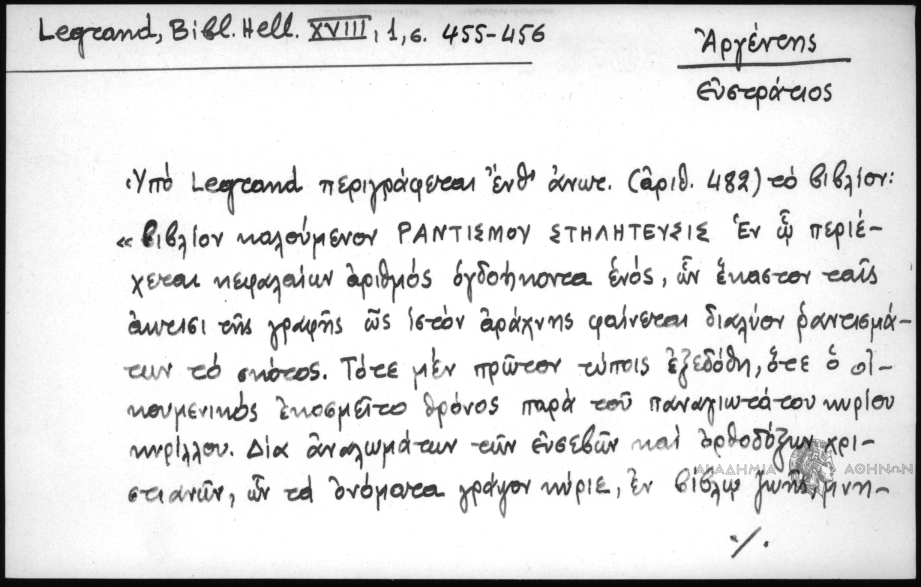 Legrand, Bibl. Hell. XVIII, 1, σ. 455-456
Ἀργέντης
Εὐστράτιος
Ὑπό Legrand περιγράφεται ἔνθ' ἀνωτ. (ἀριθ. 482) τό βιβλίον:
« Βιβλίον καλούμενον ΡΑΝΤΙΣΜΟΥ ΣΤΗΛΗΤΕΥΣΙΣ Ἐν ᾧ περιέ-
χεται κεφαλαίων ἀριθμός ὀγδοήκοντα ἑνός, ὧν ἕκαστον ταῖς
ἀκτισι τῆς γραφῆς ὡς ἱστόν ἀράχνης φαίνεται διαλύον ῥαντισμά-
των τό σκότος. Τότε μέν πρῶτον τύποις ἐξεδόθη, ὅτε ὁ οἰ-
κουμενικός ἐκοσμεῖτο θρόνος παρά τοῦ παναγιωτάτου κυρίου
κυρίλλου. Διά ἀναλωμάτων τῶν εὐσεβῶν καί ὀρθοδόξων χρι-
στιανῶν, ὧν τά ὀνόματα γράψον κύριε, ἐν βίβλῳ ζωῆς, μνη-
ΑΚΑΔΗΜΙΑ ΑΘΗΝΩΝ
./.